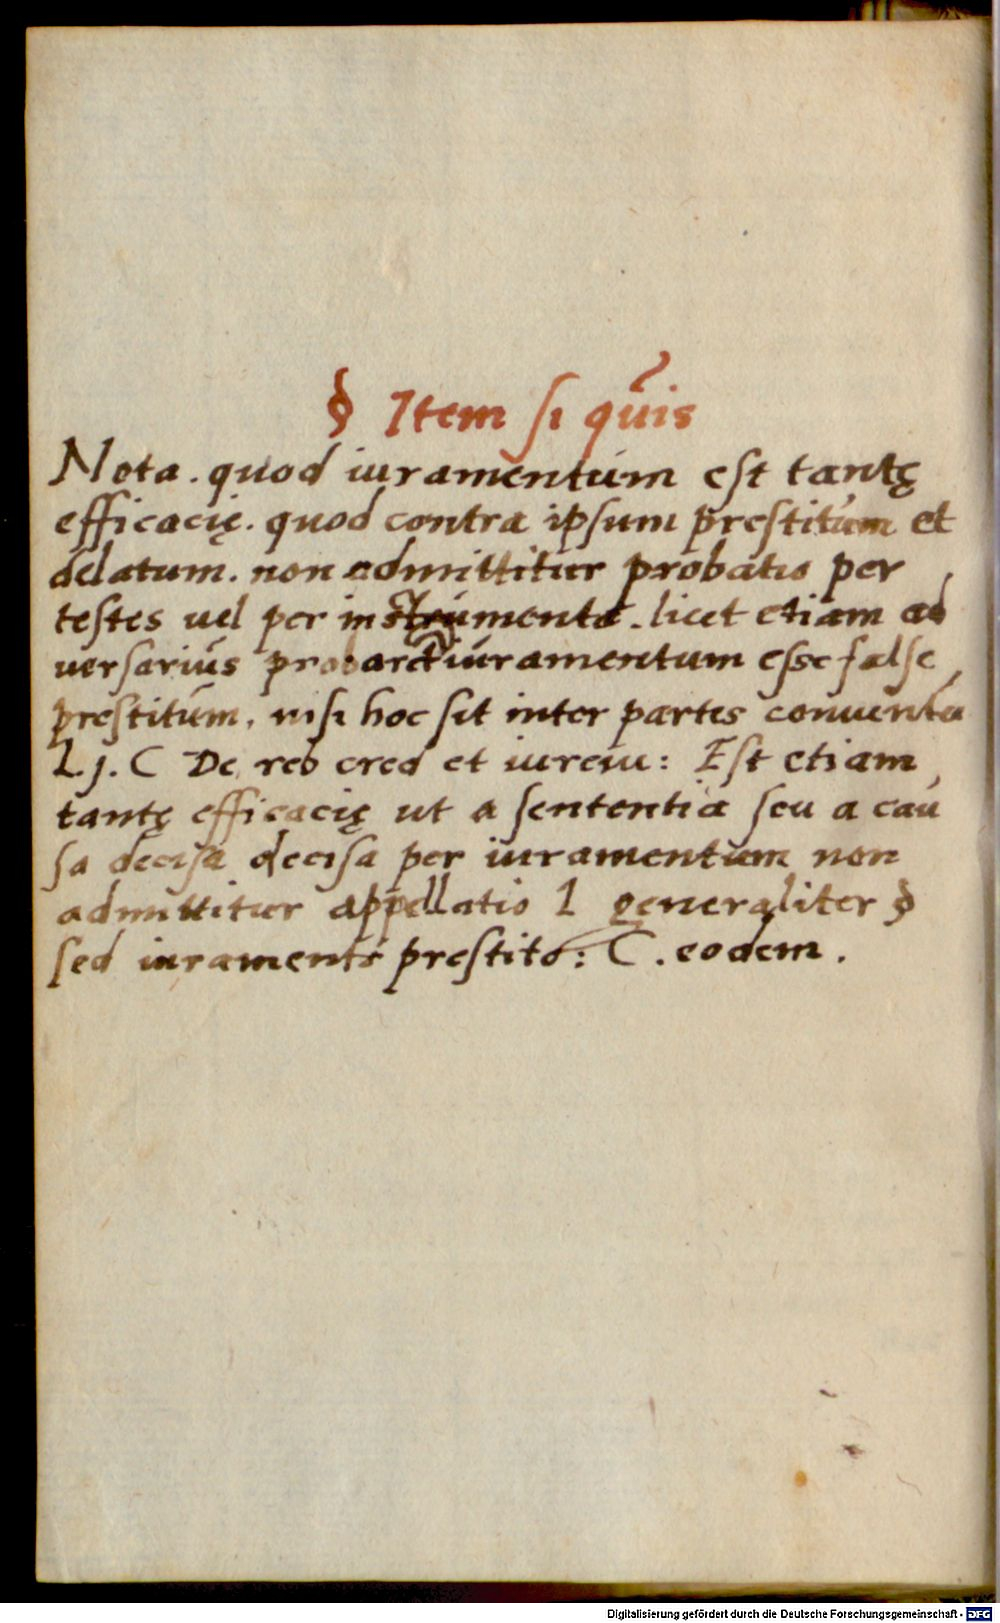 § Item si quis
Nota. quod iuramentum est tantę
efficacię. quod contra ipsum prestitum et
delatum. non admittitur probatio per
testes uel per instrumenta. licet etiam ad
uersarius probaret iuramentum esse false
prestitum, nisi hoc sit inter partes conuentu
L. j. C De reb cred et iureiu: Est etiam
tantę efficacię ut a sententia seu a cau
sa decisa decisa per iuramentum non
admittitur appellatio l generaliter §
sed iuramento prestito: C. eodem.
Digitalisierung gefördert durch die Deutsche Forschungsgemeinschaft - DFG